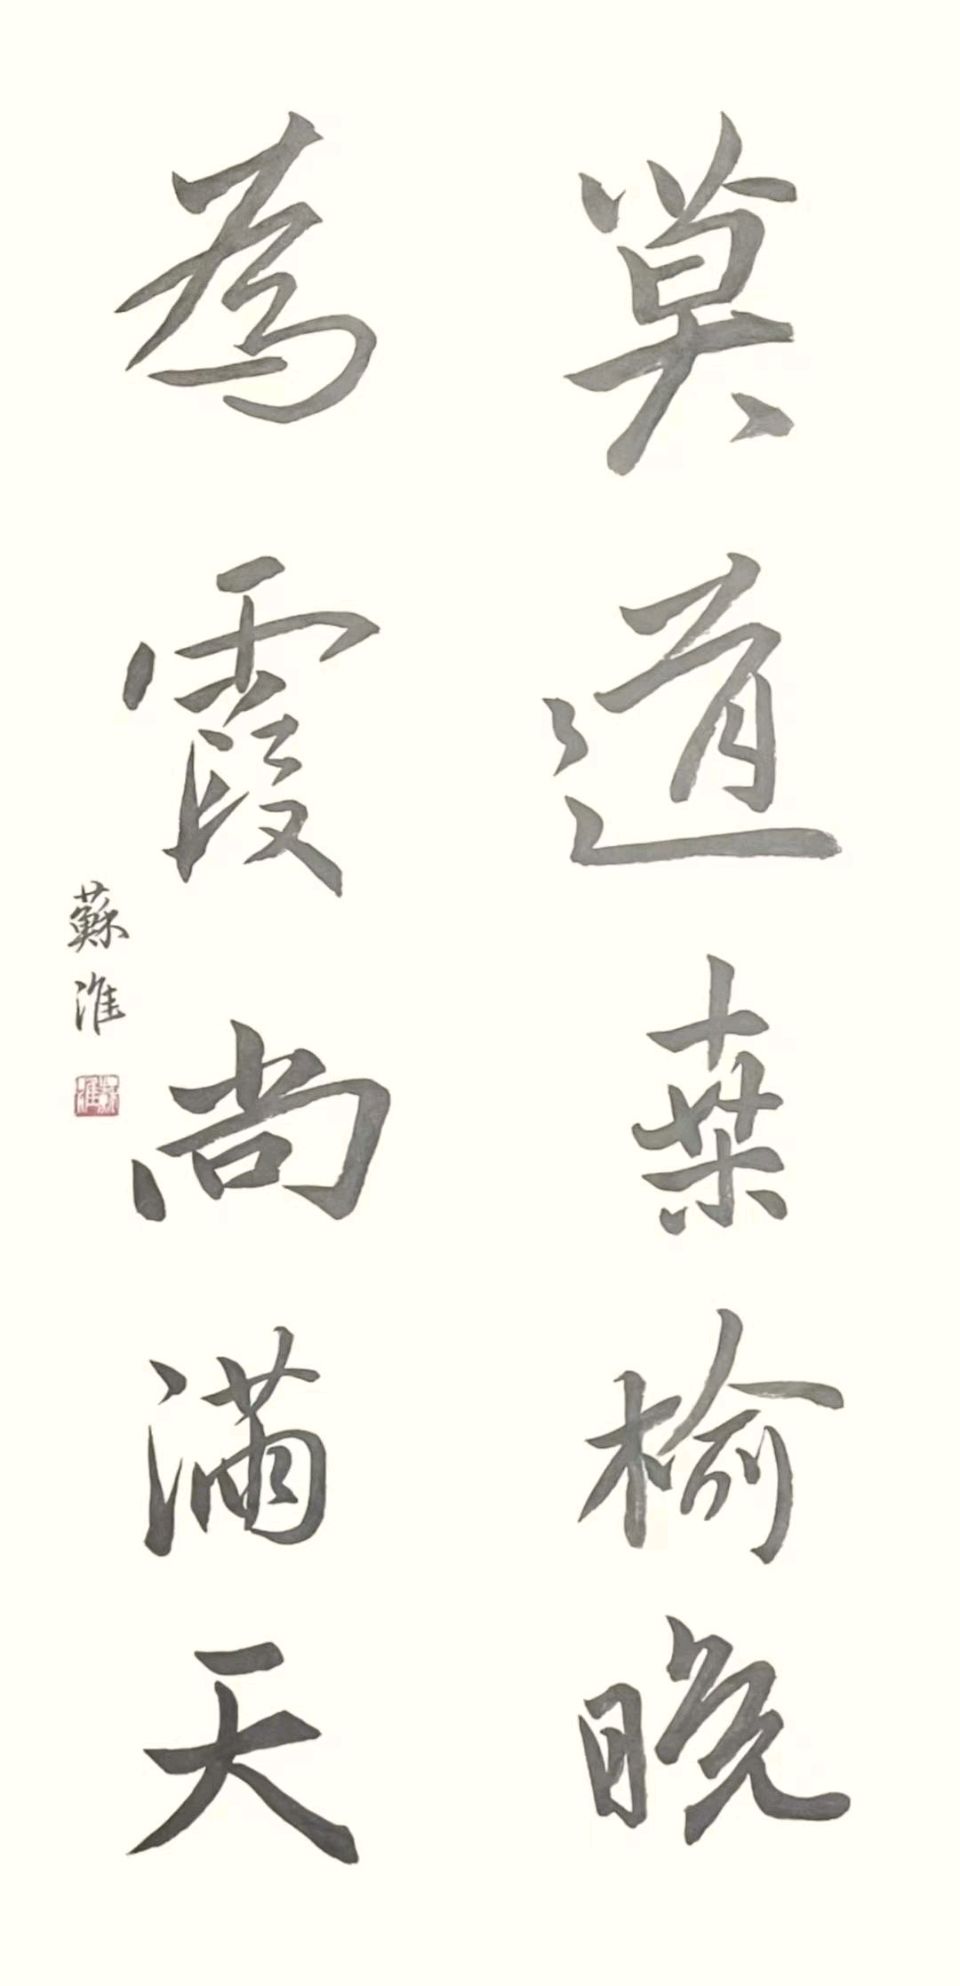 莫道桑榆晚
為霞尚滿天
蘇淮